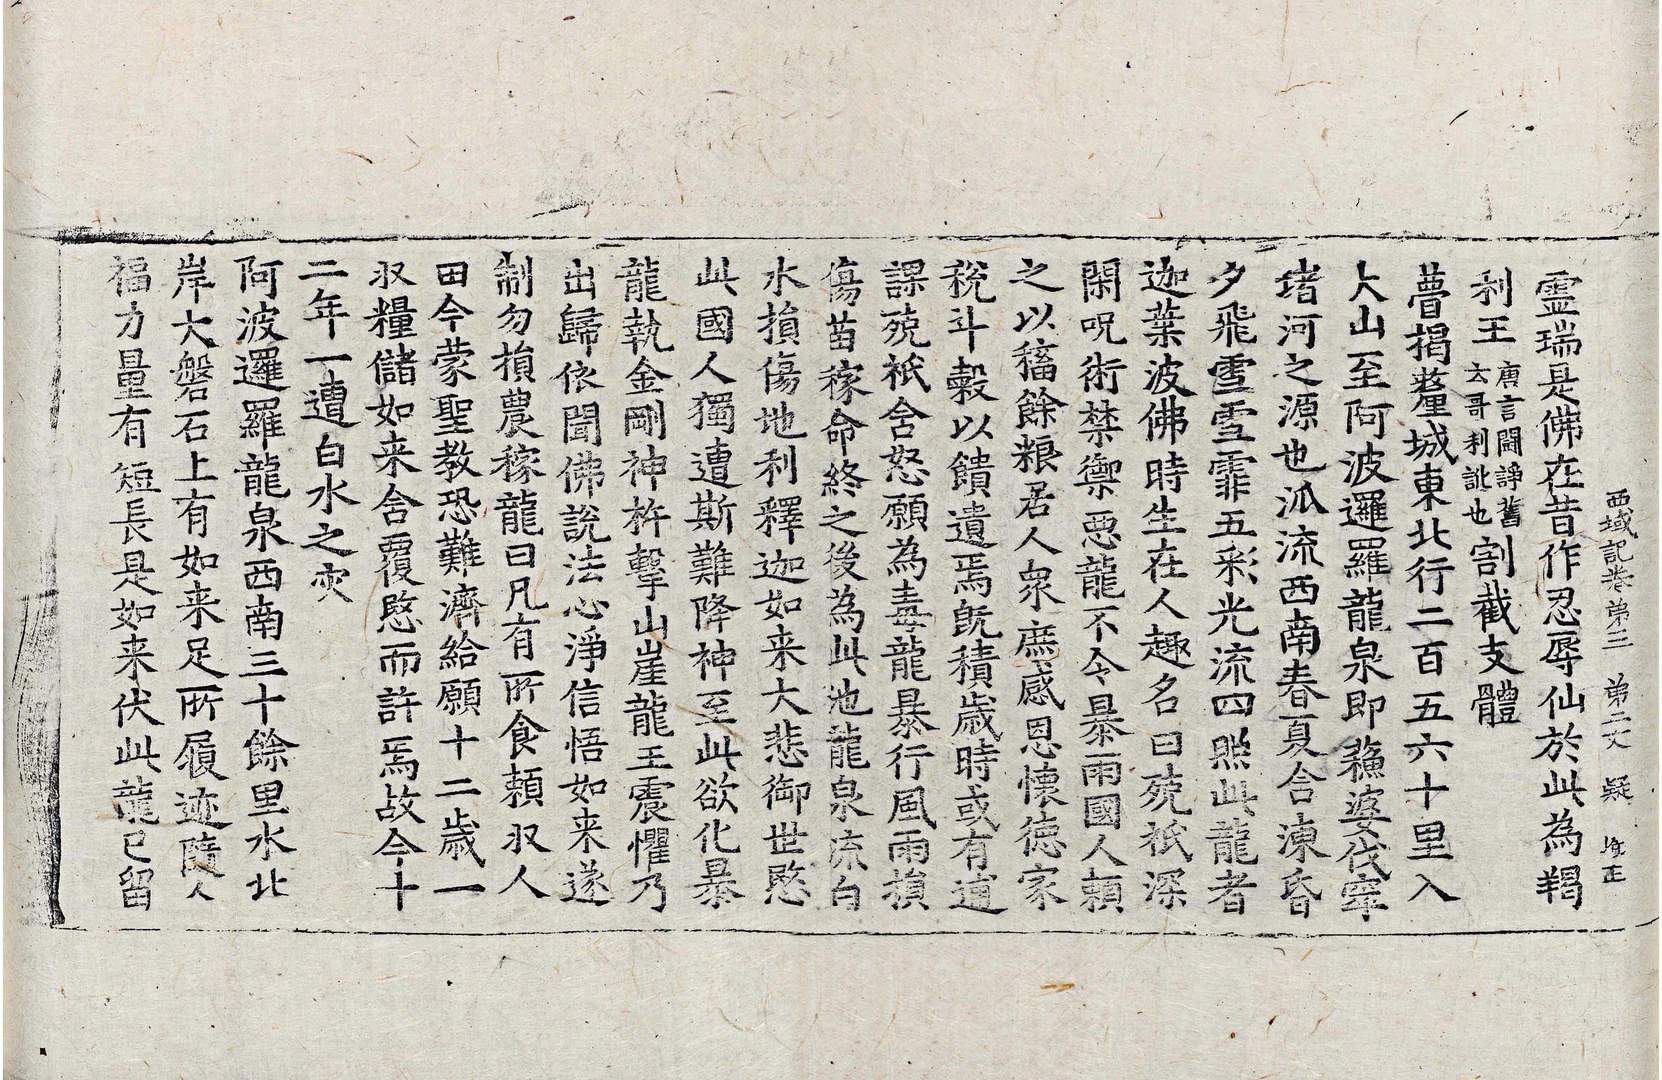 西域記卷第三　第二丈　疑
靈瑞是佛在昔作忍辱仙於此為羯
利王唐言鬪諍舊云哥利訛也割截支體
瞢揭釐城東北行二百五六十里入
大山至阿波邏羅龍泉即蘇婆伐窣
堵河之源也派流西南春夏含凍昏
夕飛雪雪霏五彩光流四照此龍者
迦葉波佛時生在人趣名曰殑祇深
閑呪術禁禦惡龍不令暴雨國人賴
之以稸餘粮居人衆庶感恩懷德家
稅斗穀以饋遺焉既積歲時或有逋
課殑祇含怒願為毒龍暴行風雨損
傷苗稼命終之後為此池龍泉流白
水損傷地利釋迦如来大悲御世愍
此國人獨遭斯難降神至此欲化暴
龍執金剛神杵擊山崖龍王震懼乃
出歸依聞佛說法心淨信悟如来遂
制勿損農稼龍曰凡有所食賴収人
田今蒙聖教恐難濟給願十二歲一
収糧儲如来含覆愍而許焉故今十
二年一遭白水之灾
阿波邏羅龍泉西南三十餘里水北
岸大磐石上有如来足所履迹隨人
福力量有短長是如来伏此龍已留